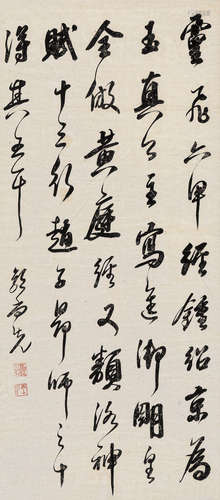 靈飛六甲經鍾紹京為
玉真公主寫進御明皇
全倣黃庭經又類洛神
賦十三行趙子昂師之十
得其五耳 郭尚先